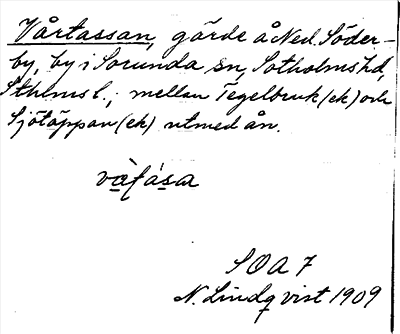 Vårtassan, gärde å Ned. Söder-
by, by i Sorunda sn, Sotholms hd,
Sthlms l.; mellan Tegelbruk (ek) och
Sjötäppan (ek) utmed ån.
SOA 7
N. Lindqvist 1909